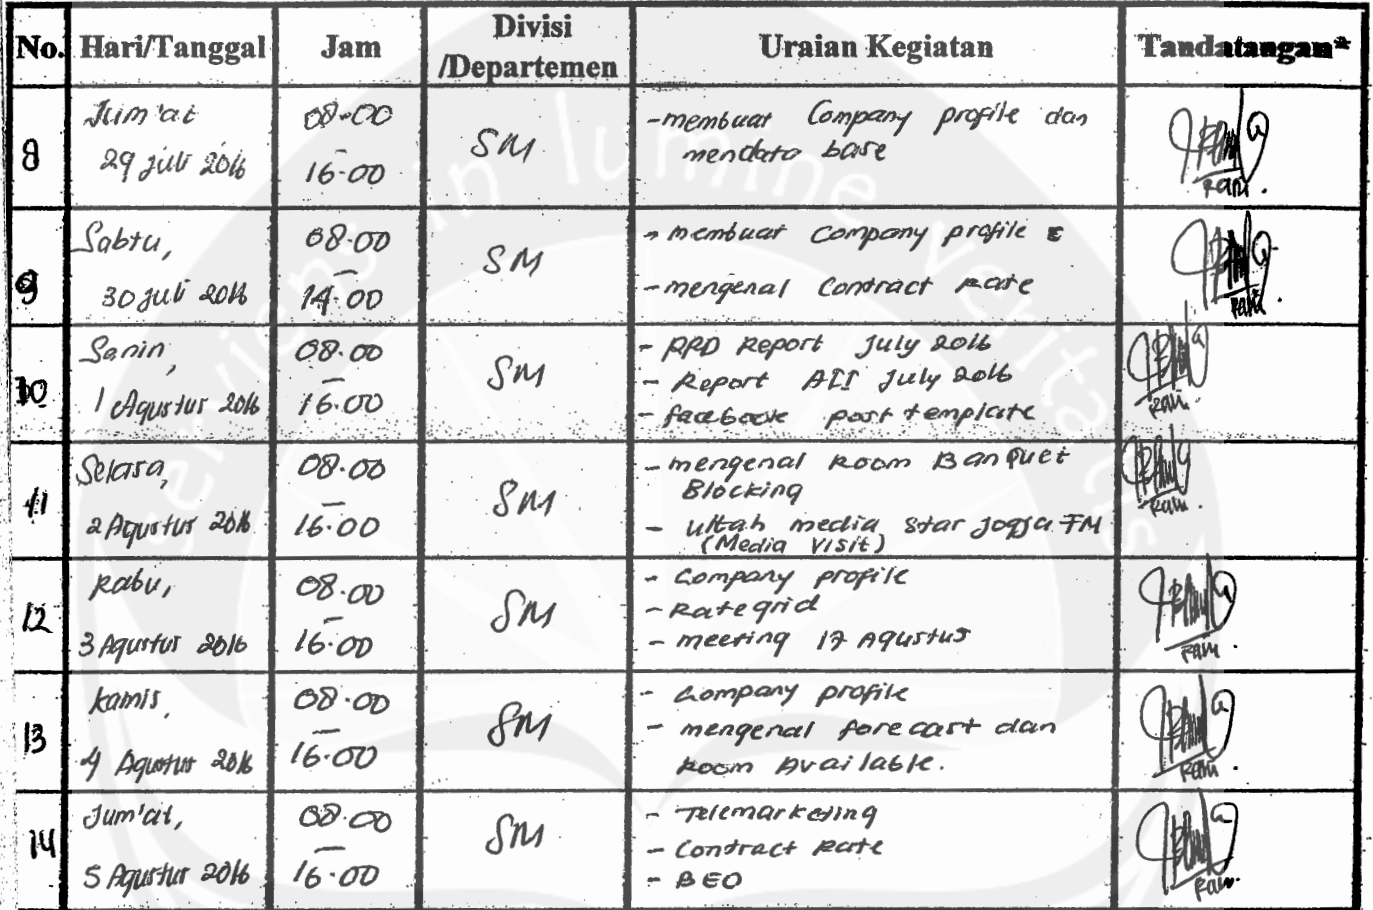 No. Hari/Tanggal Jam Divisi /Departemen Uraian Kegiatan Tandatangan*
8 Jum'at 29 juli 2016 08.00 - 16.00 SM - membuat Company profile dan
mendata base
Rani.
9 Sabtu, 30 juli 2016 08.00 - 14.00 SM - membuat Company profile
- mengenal Contract Rate
Rani.
10 Senin, 1 Agustus 2016 08.00 - 16.00 SM - RPD Report July 2016
- Report All July 2016
- facebook post template
Rani.
11 Selasa, 2 Agustus 2016 08.00 - 16.00 SM - mengenal Room Banquet
Blocking
- Ultah media Star Jogja FM
(Media Visit)
Rani.
12 Rabu, 3 Agustus 2016 08.00 - 16.00 SM - Company profile
- Rate grid
- meeting 17 Agustus
Rani.
13 Kamis, 4 Agustus 2016 08.00 - 16.00 SM - Company profile
- mengenal forecast dan
Room Available.
Rani.
14 Jum'at, 5 Agustus 2016 08.00 - 16.00 SM - Telemarketing
- Contract Rate
- BEO
Rani.
serviens in lumine veritatis